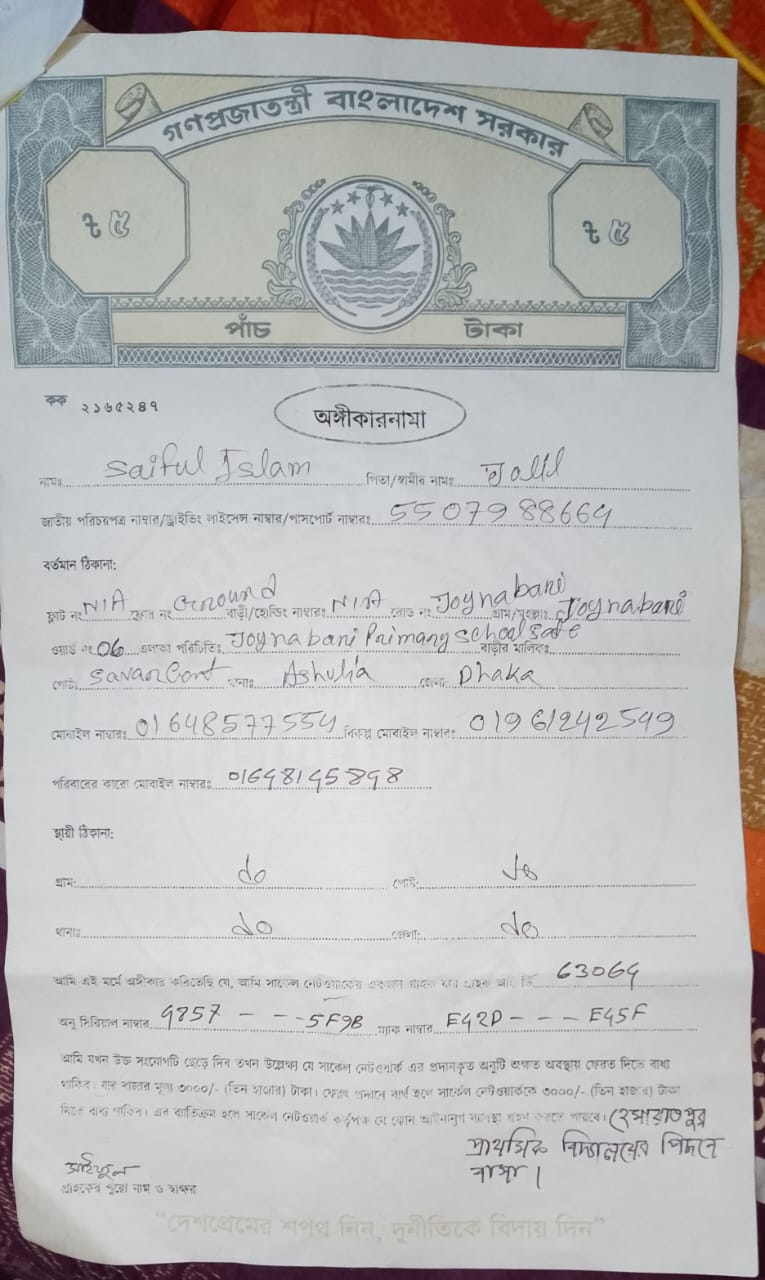 গণপ্রজাতন্ত্রী বাংলাদেশ সরকার
৳ ৫ ৳ ৫
পাঁচ টাকা
কক ২১৬৫২৪৭
অঙ্গীকারনামা
নামঃ Saiful Islam পিতা/স্বামীর নামঃ Jolil
জাতীয় পরিচয়পত্র নাম্বার/ড্রাইভিং লাইসেন্স নাম্বার/পাসপোর্ট নাম্বারঃ 5507988664
বর্তমান ঠিকানা:
ফ্লাট নং N/A ফ্লোর নং Ground বাড়ী/হোল্ডিং নাম্বারঃ N/A রোড নং Joynabani গ্রাম/মহল্লাঃ Joynabari
ওয়ার্ড নং 06 এলাকা পরিচিতিঃ Joynabani Primany School Gate বাড়ীর মালিকঃ
পোষ্টঃ Savar Cant থানাঃ Ashulia জেলাঃ Dhaka
মোবাইল নাম্বারঃ 01648577554 বিকল্প মোবাইল নাম্বারঃ 01961242549
পরিবারের কারো মোবাইল নাম্বারঃ 01648145898
স্থায়ী ঠিকানা:
গ্রাম: do পোষ্ট: do
থানাঃ do জেলা: do
আমি এই মর্মে অঙ্গীকার করিতেছি যে, আমি সার্কেল নেটওয়ার্কের একজন গ্রাহক যার গ্রাহক আই ডি 63064
অনু সিরিয়াল নাম্বার 9857 - - - 5F9B ম্যাক নাম্বার E42D - - - E45F
আমি যখন উক্ত সংযোগটি ছেড়ে দিব তখন উল্লেক্ষ্য যে সার্কেল নেটওয়ার্ক এর প্রদানকৃত অনুটি অক্ষত অবস্থায় ফেরত দিতে বাধ্য
থাকিব। যার বাজার মূল্য ৩০০০/- (তিন হাজার) টাকা। ফেরৎ প্রদানে ব্যর্থ হলে সার্কেল নেটওয়ার্ককে ৩০০০/- (তিন হাজার) টাকা
দিতে বাধ্য থাকিব। এর ব্যতিক্রম হলে সার্কেল নেটওয়ার্ক কর্তৃপক্ষ যে কোন আইনানুগ ব্যবস্থা গ্রহণ করতে পারবে।
প্রাথমিক বিদ্যালয়ের পিছনে
বাসা।
সাইফুল
গ্রাহকের পুরো নাম ও স্বাক্ষর
"দেশপ্রেমের শপথ নিন, দুর্নীতিকে বিদায় দিন"